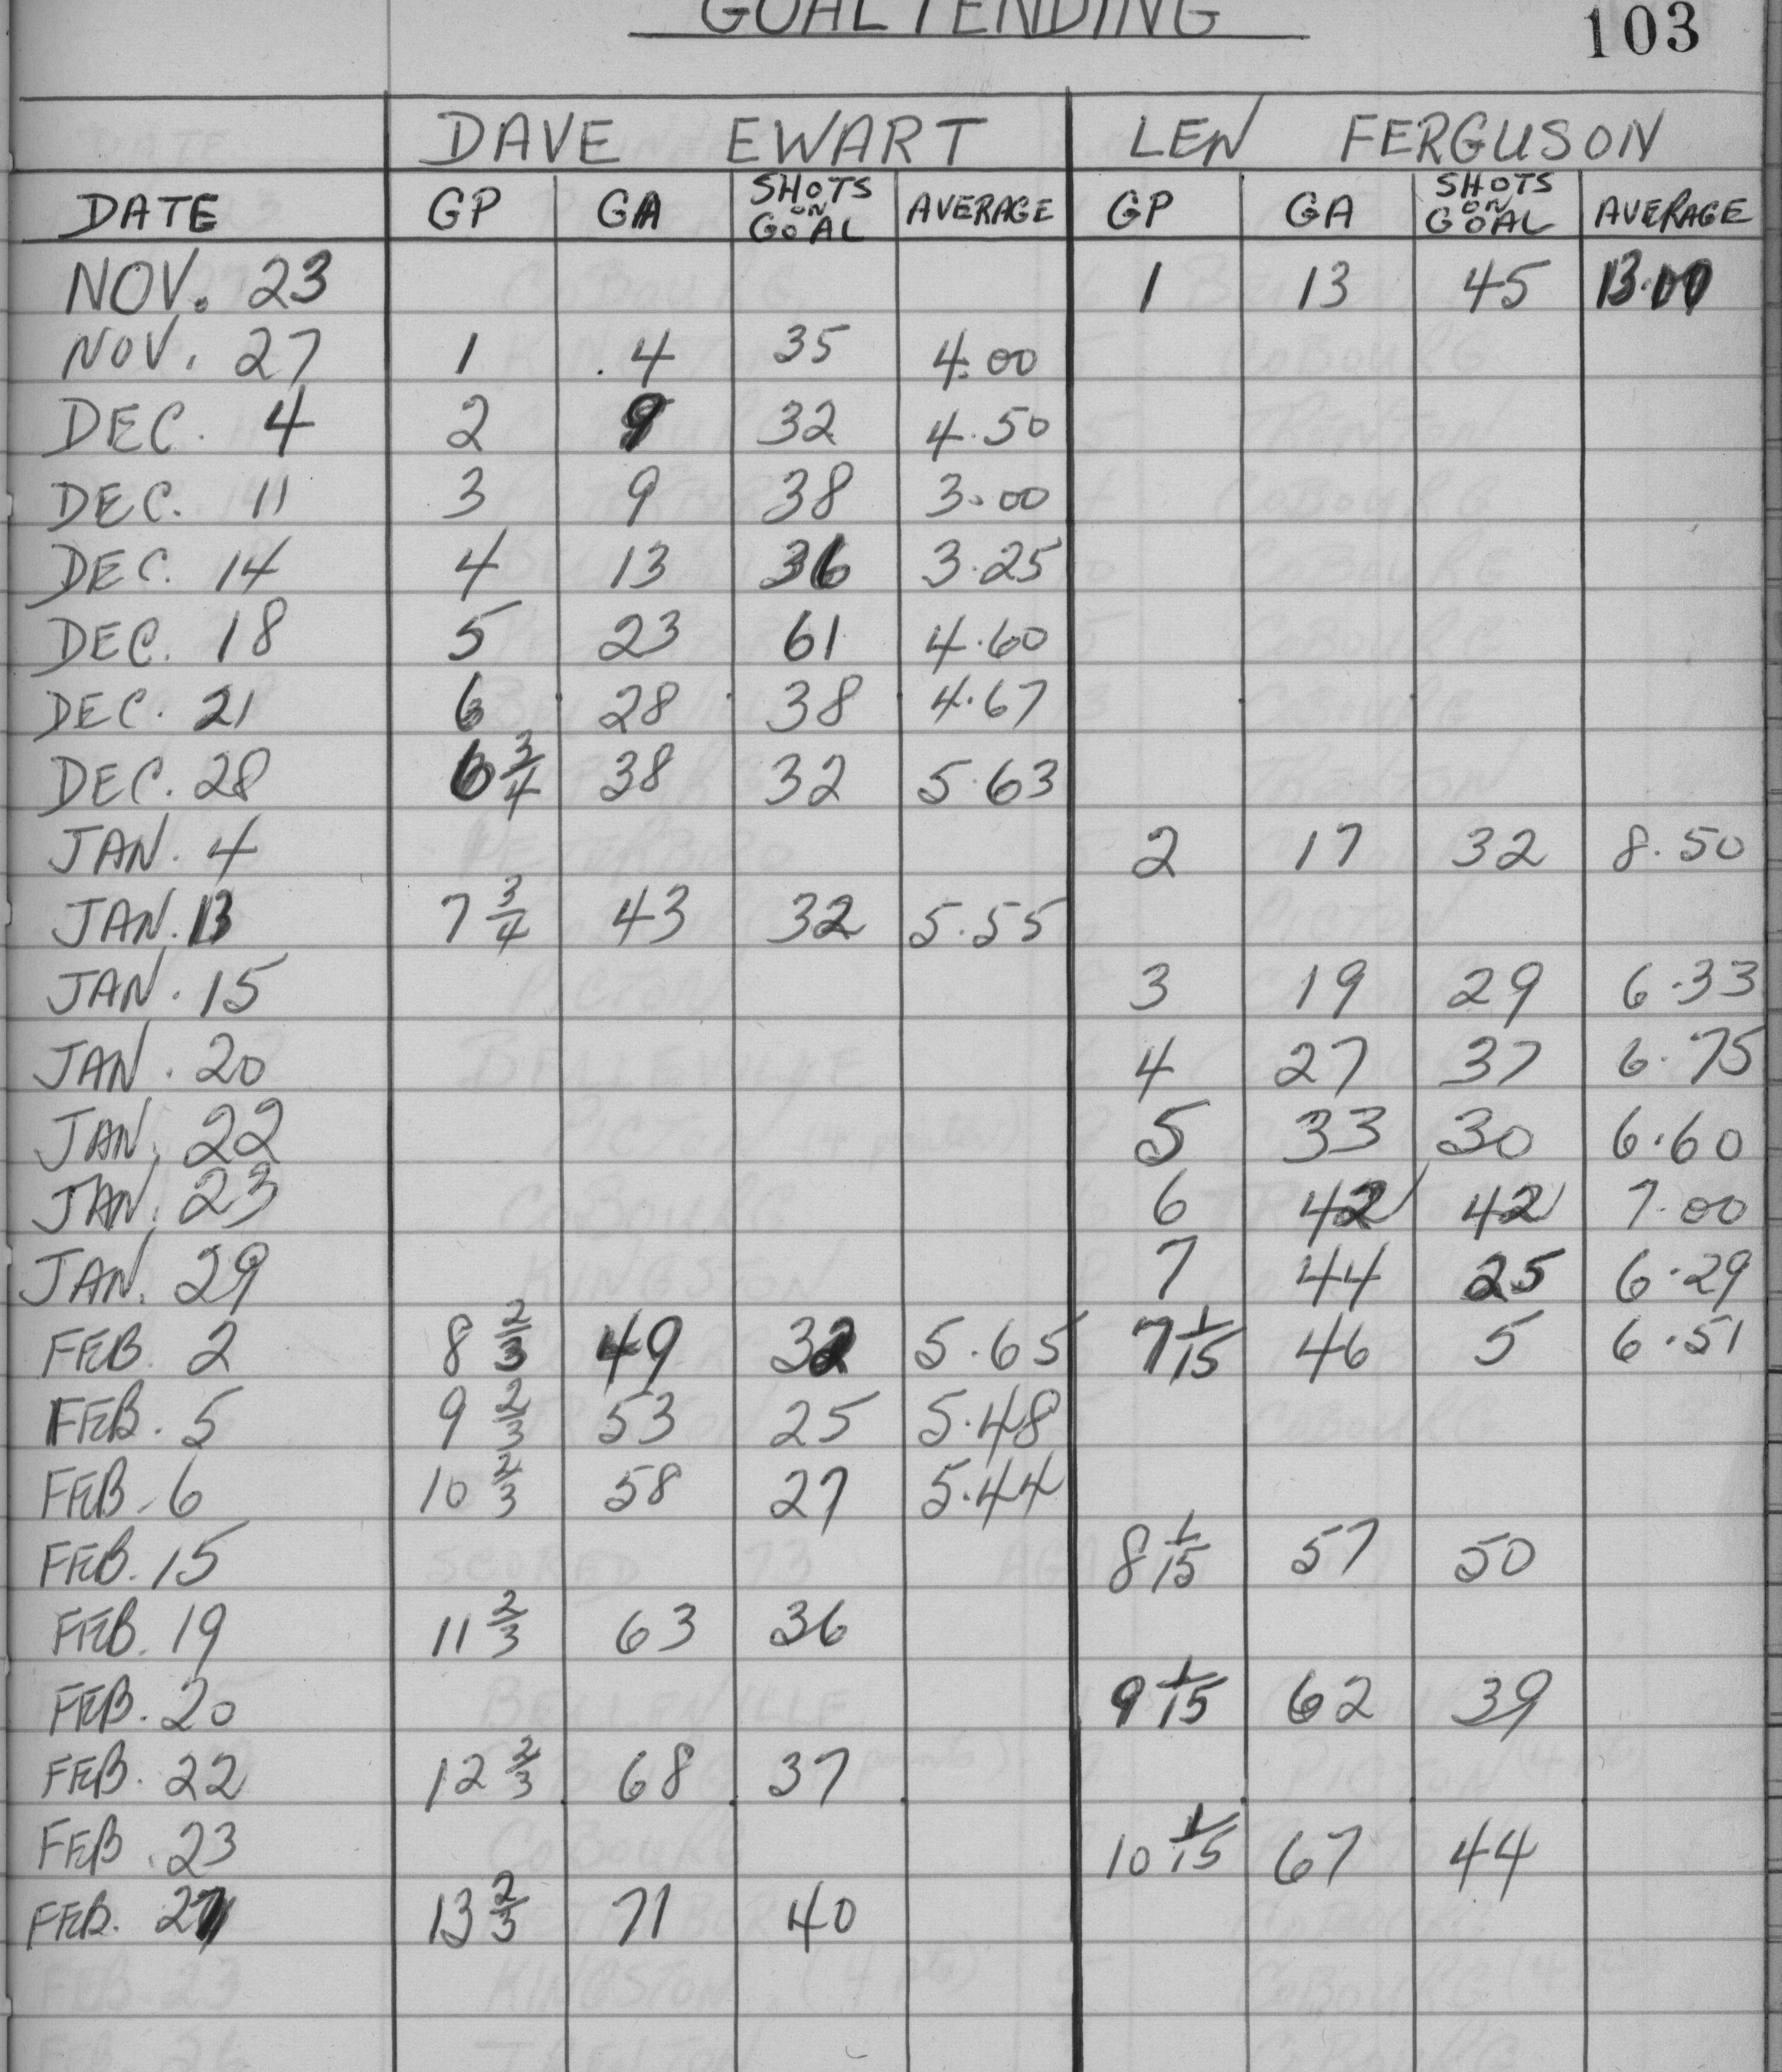 GOALTENDING 103
DAVE EWART LEN FERGUSON
DATE GP GA SHOTS ON GOAL AVERAGE GP GA SHOTS ON GOAL AVERAGE
NOV. 23 1 13 45 13.00
NOV. 27 1 4 35 4.00
DEC. 4 2 9 32 4.50
DEC. 11 3 9 38 3.00
DEC. 14 4 13 36 3.25
DEC. 18 5 23 61 4.60
DEC. 21 6 28 38 4.67
DEC. 28 6 3/4 38 32 5.63
JAN. 4 2 17 32 8.50
JAN. 13 7 3/4 43 32 5.55
JAN. 15 3 19 29 6.33
JAN. 20 4 27 37 6.75
JAN. 22 5 33 30 6.60
JAN. 23 6 42 42 7.00
JAN. 29 7 44 25 6.29
FEB. 2 8 2/3 49 32 5.65 7 1/15 46 5 6.51
FEB. 5 9 2/3 53 25 5.48
FEB. 6 10 2/3 58 27 5.44
FEB. 15 8 1/15 57 50
FEB. 19 11 2/3 63 36
FEB. 20 9 1/15 62 39
FEB. 22 12 2/3 68 37
FEB. 23 10 1/15 67 44
FEB. 27 13 2/3 71 40